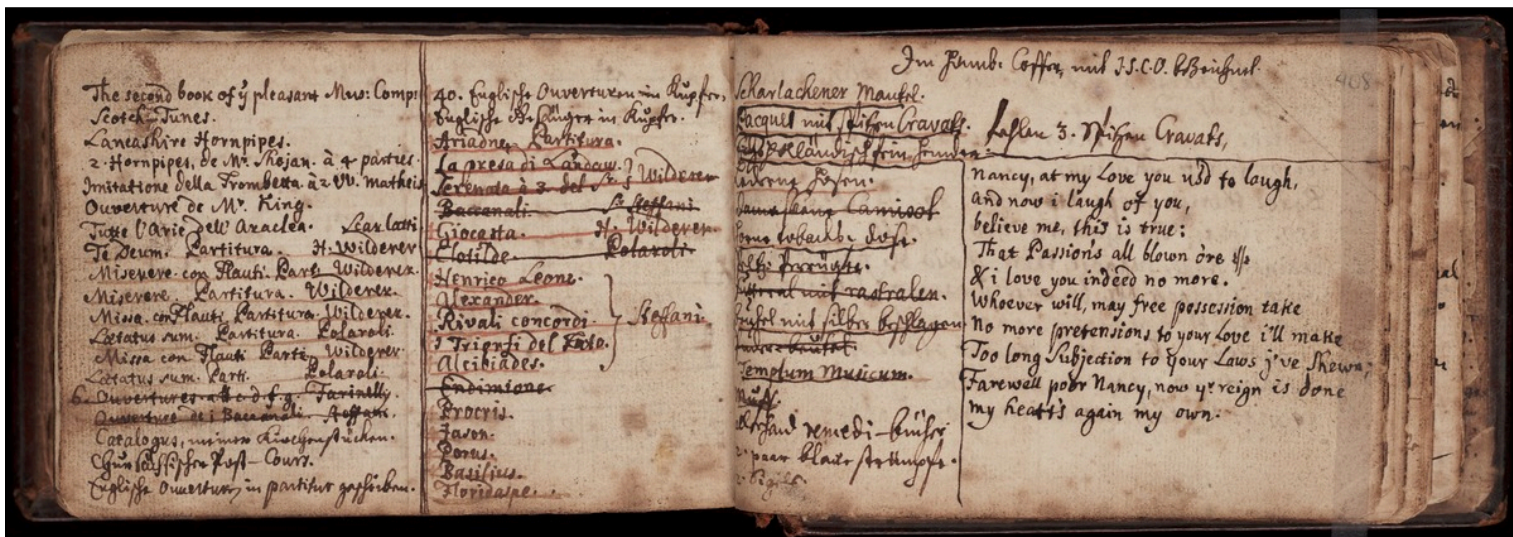 The second book of ÿ pleasant Mus: Comp:
Scotch-Tunes.
Lancashire Hornpipes.
2. Hornpipes, de Mr. Shojan. à 4 parties.
Imitatione della Trombetta. à 2 VV. Matheis
Ouverture de Mr. King.
Tutte l'Arie dell' Araclea. Scarlatti
Te Deum. Partitura. H. Wilderer
Miserere con Flauti. Part. Wilderer.
Miserere. Partitura. Wilderer.
Missa. con Flauti. Partitura. Wilderer.
Laetatus sum. Partitura. Polaroli.
Missa con Flauti. Parti. Wilderer.
Laetatus sum. Parti. Polaroli.
6. Ouvertures c. d. f. g. Farinelli.
Ouverture dei Baccanali. Steffani.
Catalogus, meiner Kirchenstücken.
ChurSächsischer Post-Cours.
Englische Ouverturen in partitur geschrieben.
40. Englische Ouverturen in Kupfer.
Englische Gesänger in Kupfer.
Ariadne, Partitura.
La presa di Landau. } Wilderer
Serenata à 3. del Sr.
Baccanali. Sr. Steffani
Giocasta. H. Wilderer.
Clotilde. Polaroli.
Henrico Leone.
Alexander.
Rivali concordi. } Steffani.
I Trionfi del Fato.
Alcibiades.
Endimione.
Procris.
Jason.
Porus.
Basilius.
Floridaspe.
Im Hamb. Coffer, mit J.S.C.O. bezeichnet.
Scharlachener Mantel.
Jacquet mit Spitzen Cravats.
holländisch fein
hosen.
Camisol
mit rastralen.
mit silber beschlagen
Templum Musicum.
Muff.
remedi-bücher
paar blaue strümpfe.
Sigill.
fehlen 3. Spitzen Cravats,
Nancy, at my Love you us'd to laugh,
and now i laugh of you,
believe me, this is true:
That Passion's all blown ore
& i love you indeed no more.
Whoever will, may free possession take
No more pretensions to your Love i'll make
Too long Subjection to your Laws j've Shewn;
Farewell poor Nancy, now yr reign is done
my heart's again my own.